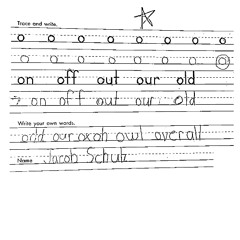 Trace and write.
o o o o o o o o
o o o o o o o o
on off out our old
on off out our old
Write your own words.
odd our oxoh owl overall
Name Jacob Schulz